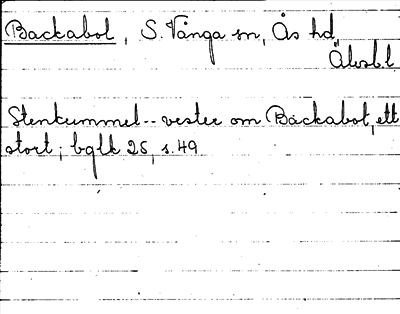 Backabol, S. Vånga sn, Ås hd,
Älvsb.l
Stenkummel -- vester om Backabol, ett
stort; bglk 25, s. 49